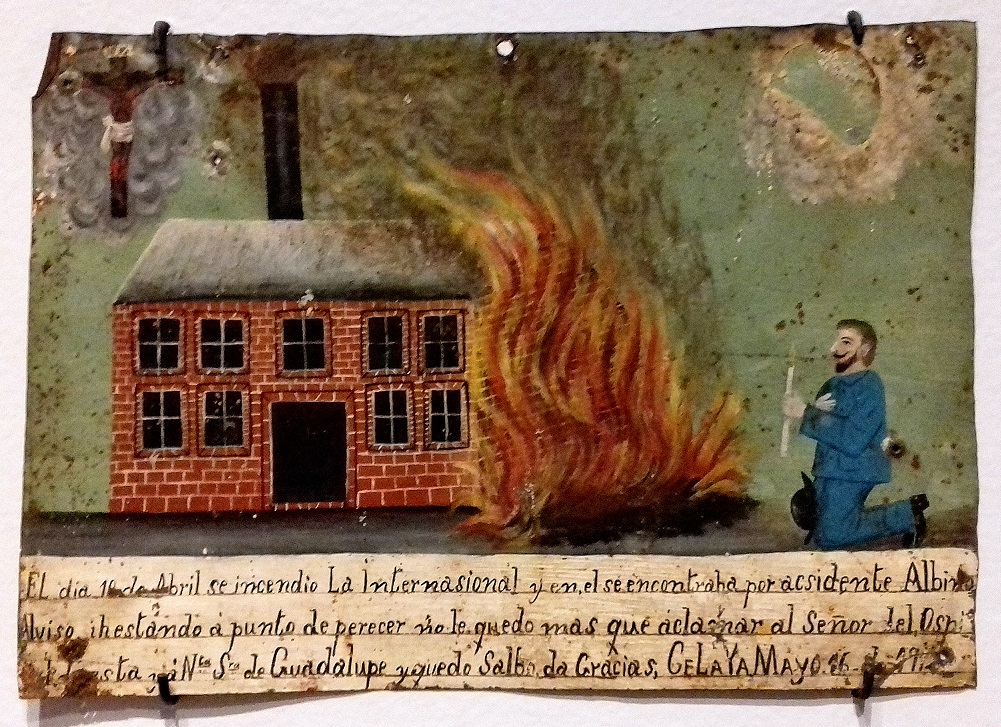 EL dia 1 de Abril se incendio La Internasional y en,el se encontraba por acsidente Albino
Alviso, ihestando á punto de perecer no le quedo mas que aclamar al Señor del Ospi
esta y á Nta Sra de Guadalupe y quedo Salbo, da Gracias, CELAYA MAYO